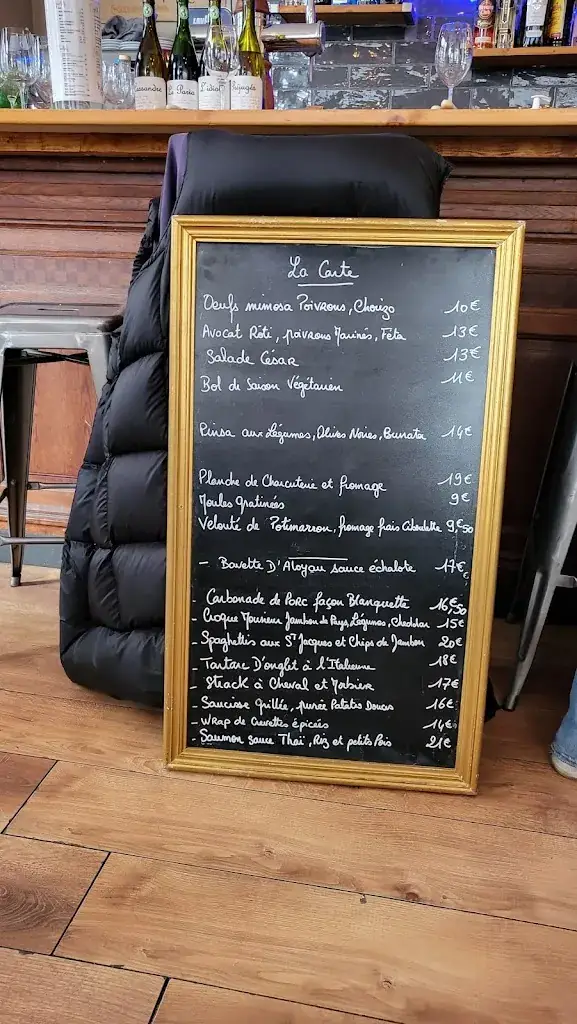 La Carte
Oeufs mimosa Poivrons, Chorizo 10€
Avocat Rôti, poivrons Marinés, Féta 13€
Salade César 13€
Bol de Saison Végétarien 11€
Pinsa aux Légumes, Olives Noires, Burrata 14€
Planche de Charcuterie et fromage 19€
Moules Gratinées 9€
Velouté de Potimarron, fromage frais Ciboulette 9,€50
- Bavette D'Aloyau sauce échalote 17€
- Carbonade de Porc façon Blanquette 16,€50
- Croque Monsieur Jambon de Pays, Légumes, Cheddar 15€
- Spaghettis aux St Jacques et Chips de Jambon 20€
- Tartare D'onglet à l'Italienne 18€
- Steack à Cheval et Morbier 17€
- Saucisse Grillée, purée Patates Douces 16€
- Wrap de Crevettes épicées 14€
- Saumon sauce Thaï, Riz et petits Pois 21€